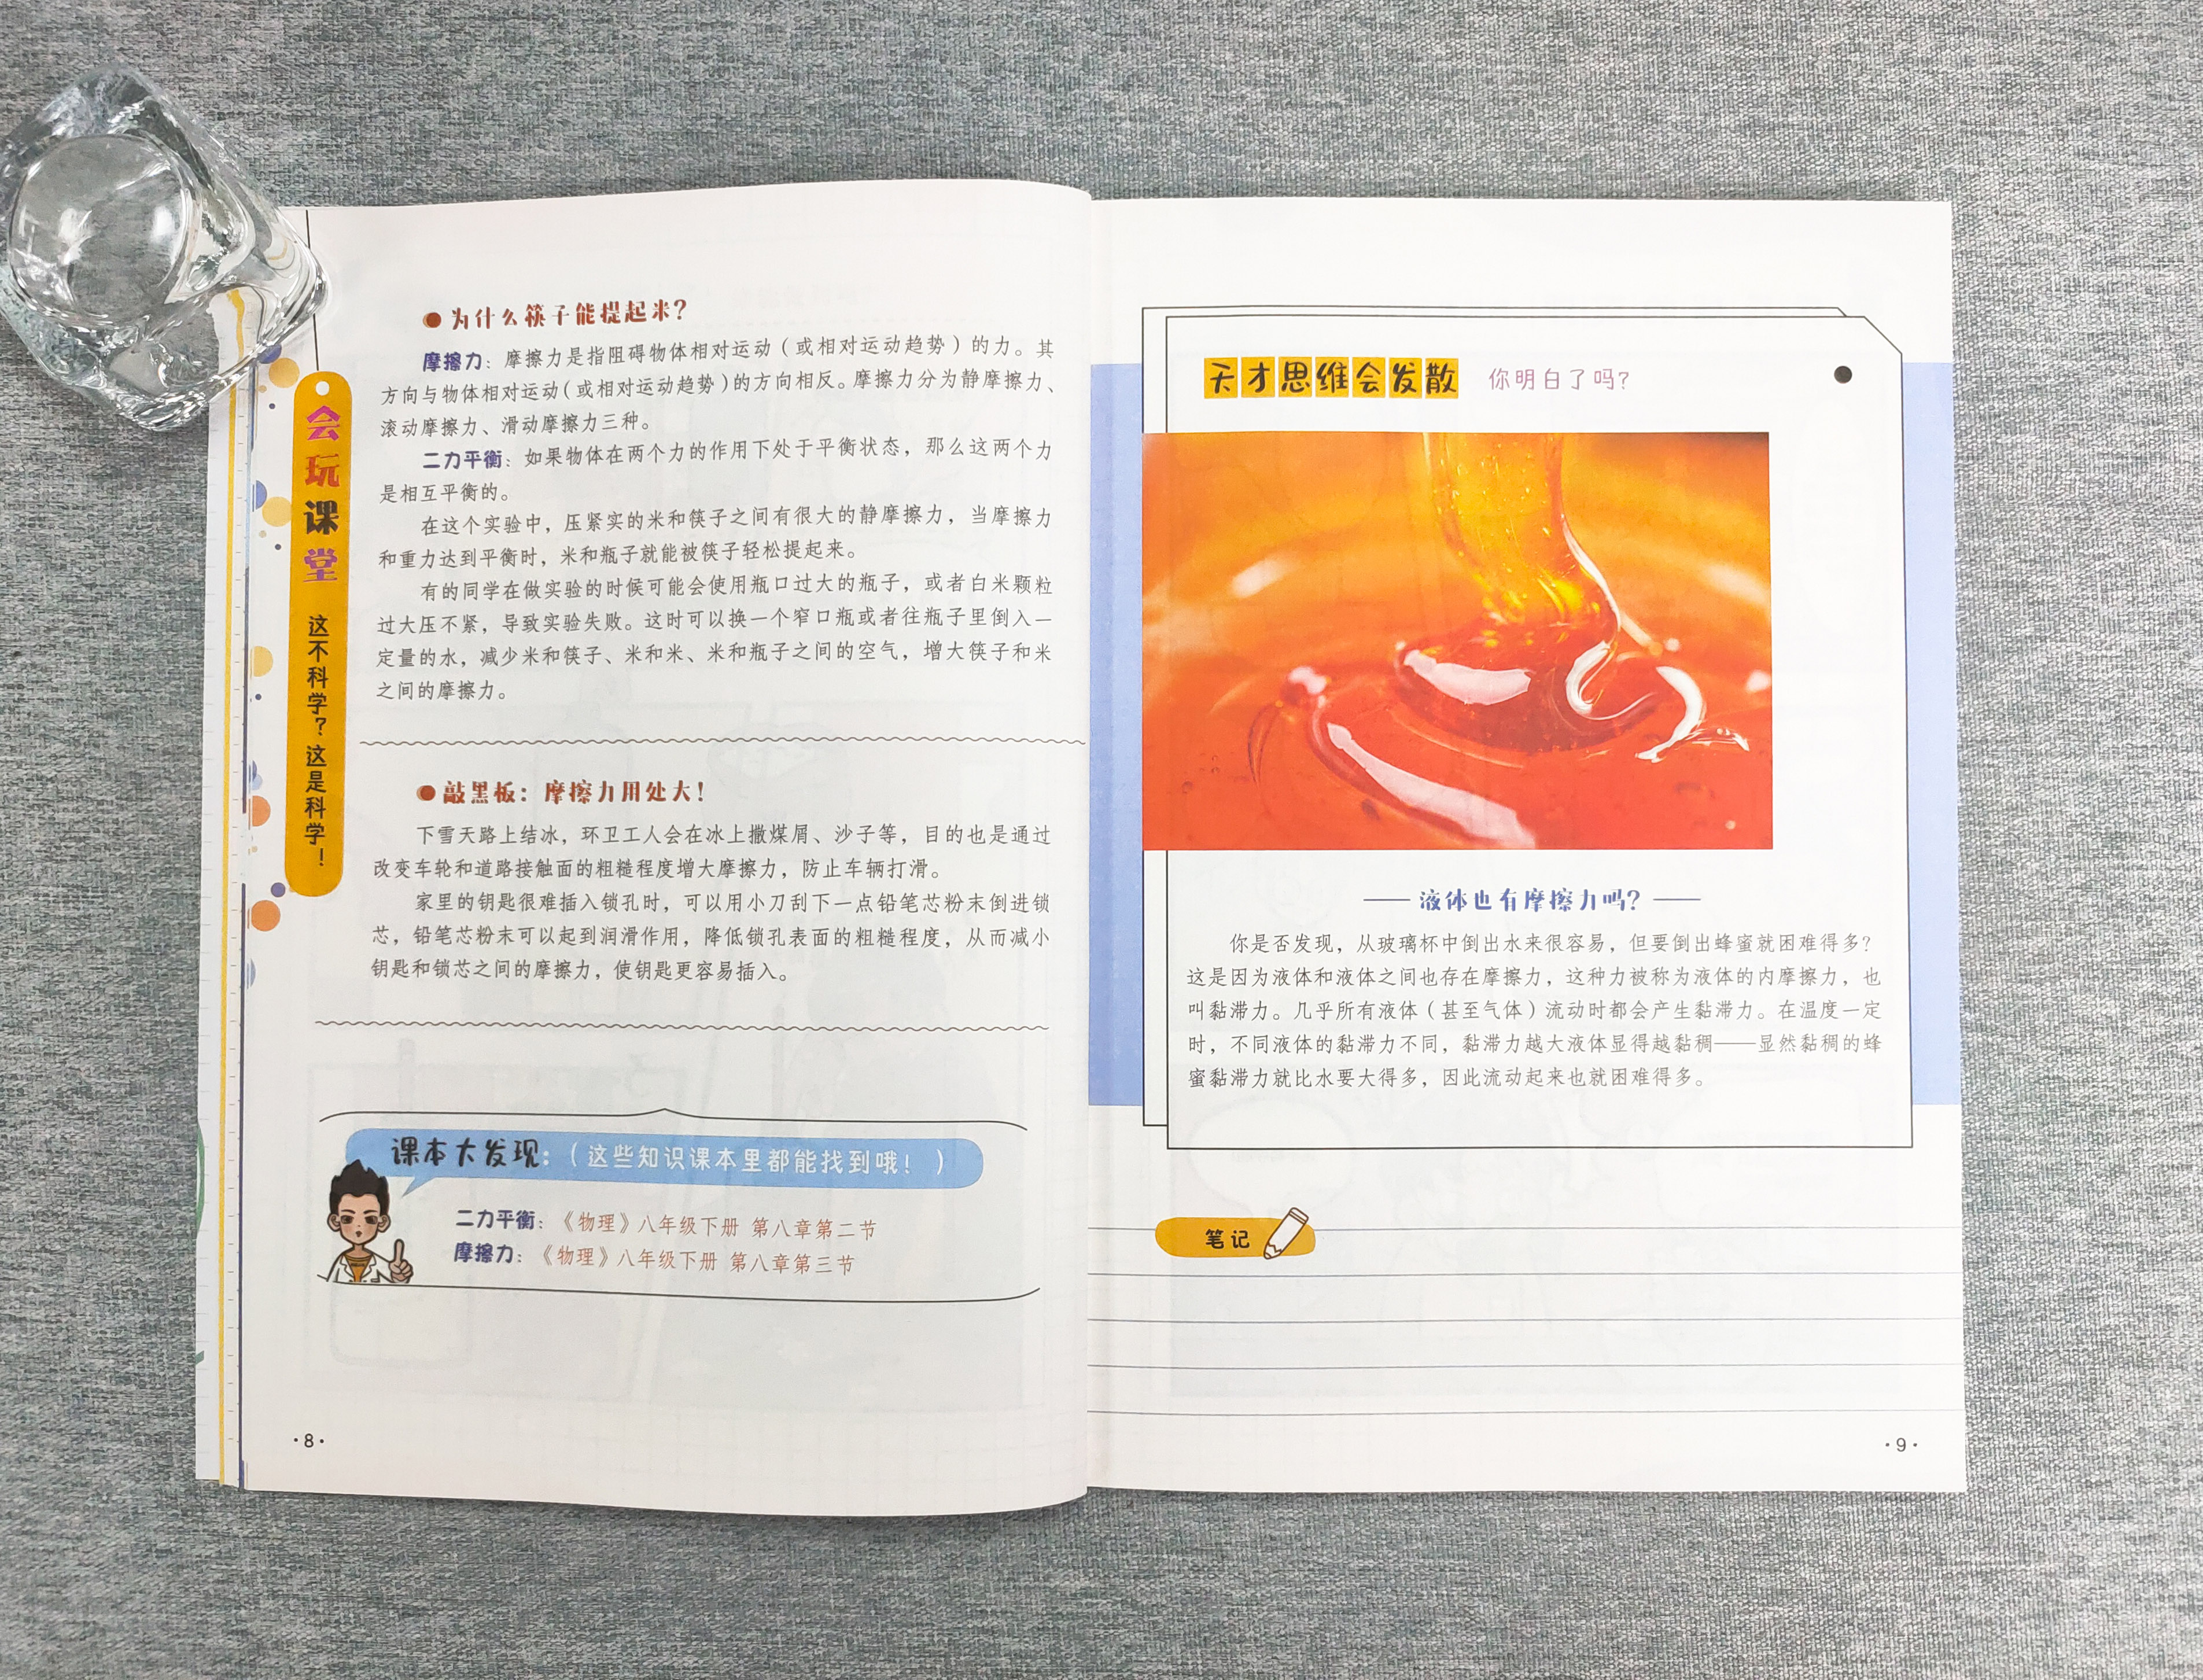 会玩课堂
这不科学？这是科学！
为什么筷子能提起米？
摩擦力：摩擦力是指阻碍物体相对运动（或相对运动趋势）的力。其
方向与物体相对运动（或相对运动趋势）的方向相反。摩擦力分为静摩擦力、
滚动摩擦力、滑动摩擦力三种。
二力平衡：如果物体在两个力的作用下处于平衡状态，那么这两个力
是相互平衡的。
在这个实验中，压紧实的米和筷子之间有很大的静摩擦力，当摩擦力
和重力达到平衡时，米和瓶子就能被筷子轻松提起来。
有的同学在做实验的时候可能会使用瓶口过大的瓶子，或者白米颗粒
过大压不紧，导致实验失败。这时可以换一个窄口瓶或者往瓶子里倒入一
定量的水，减少米和筷子、米和米、米和瓶子之间的空气，增大筷子和米
之间的摩擦力。
敲黑板：摩擦力用处大！
下雪天路上结冰，环卫工人会在冰上撒煤屑、沙子等，目的也是通过
改变车轮和道路接触面的粗糙程度增大摩擦力，防止车辆打滑。
家里的钥匙很难插入锁孔时，可以用小刀刮下一点铅笔芯粉末倒进锁
芯，铅笔芯粉末可以起到润滑作用，降低锁孔表面的粗糙程度，从而减小
钥匙和锁芯之间的摩擦力，使钥匙更容易插入。
课本大发现：（这些知识课本里都能找到哦！）
二力平衡：《物理》八年级下册 第八章第二节
摩擦力：《物理》八年级下册 第八章第三节
·8·
天才思维会发散 你明白了吗？
——液体也有摩擦力吗？——
你是否发现，从玻璃杯中倒出水来很容易，但要倒出蜂蜜就困难得多？
这是因为液体和液体之间也存在摩擦力，这种力被称为液体的内摩擦力，也
叫黏滞力。几乎所有液体（甚至气体）流动时都会产生黏滞力。在温度一定
时，不同液体的黏滞力不同，黏滞力越大液体显得越黏稠——显然黏稠的蜂
蜜黏滞力就比水要大得多，因此流动起来也就困难得多。
笔记
·9·